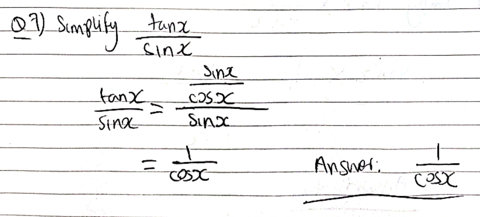 Q7) Simplify tanx/sinx
tanx/sinx = (sinx/cosx)/sinx
= 1/cosx Answer: 1/cosx